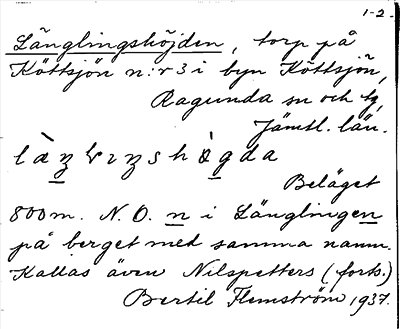 1-2.
Länglingshöjden, torp på
Köttsjön n:r 3 i byn Köttsjön,
Ragunda sn och tg,
Jämtl. län.
Beläget
800 m. N. O. n i Länglingen
på berget med samma namn.
Kallas även Nilspetters (forts.)
Bertil Flemström 1937.